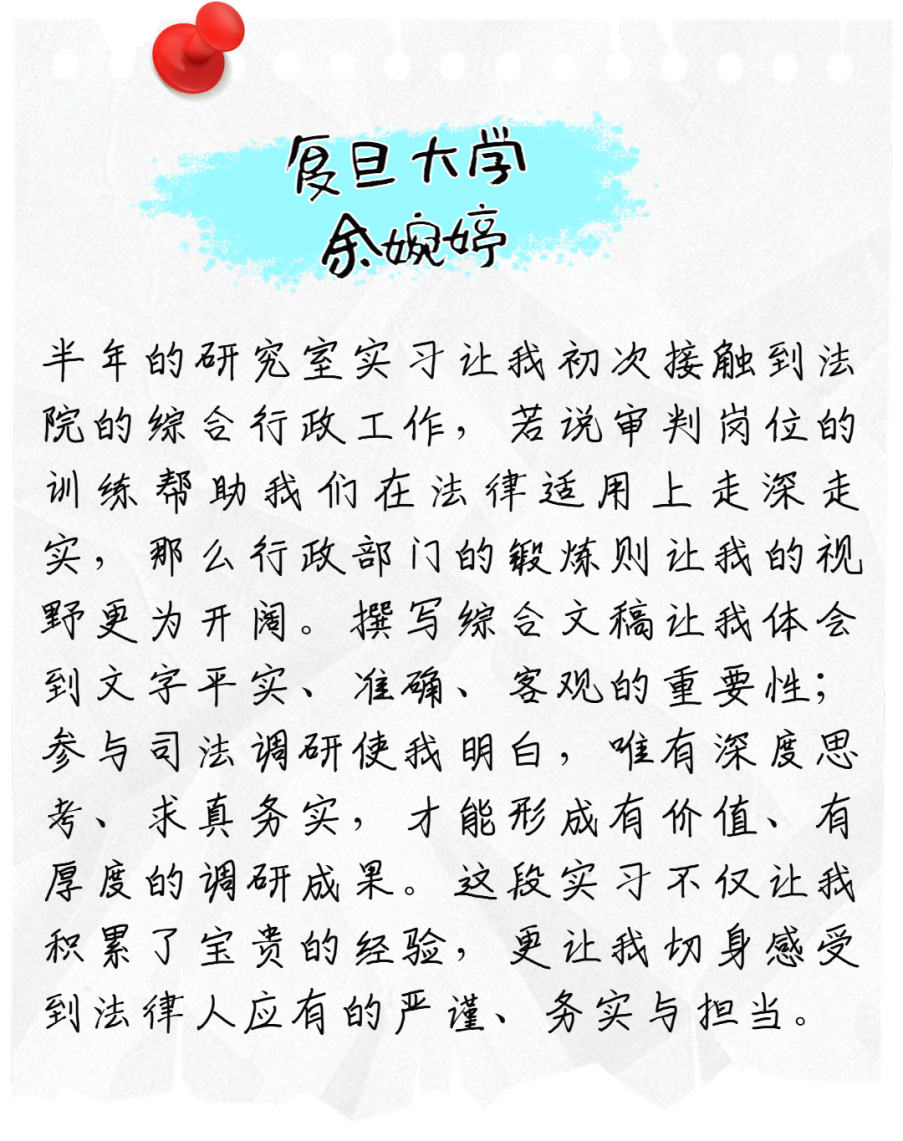 复旦大学
余婉婷
半年的研究室实习让我初次接触到法
院的综合行政工作，若说审判岗位的
训练帮助我们在法律适用上走深走
实，那么行政部门的锻炼则让我的视
野更为开阔。撰写综合文稿让我体会
到文字平实、准确、客观的重要性；
参与司法调研使我明白，唯有深度思
考、求真务实，才能形成有价值、有
厚度的调研成果。这段实习不仅让我
积累了宝贵的经验，更让我切身感受
到法律人应有的严谨、务实与担当。